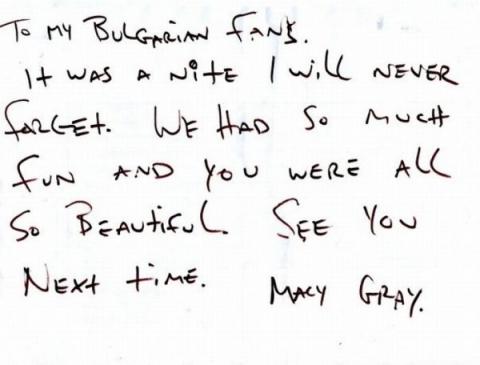 To my Bulgarian fans.
it was a nite I will never
farget. We had so much
fun and you were all
so beautiful. See you
next time. Macy Gray.